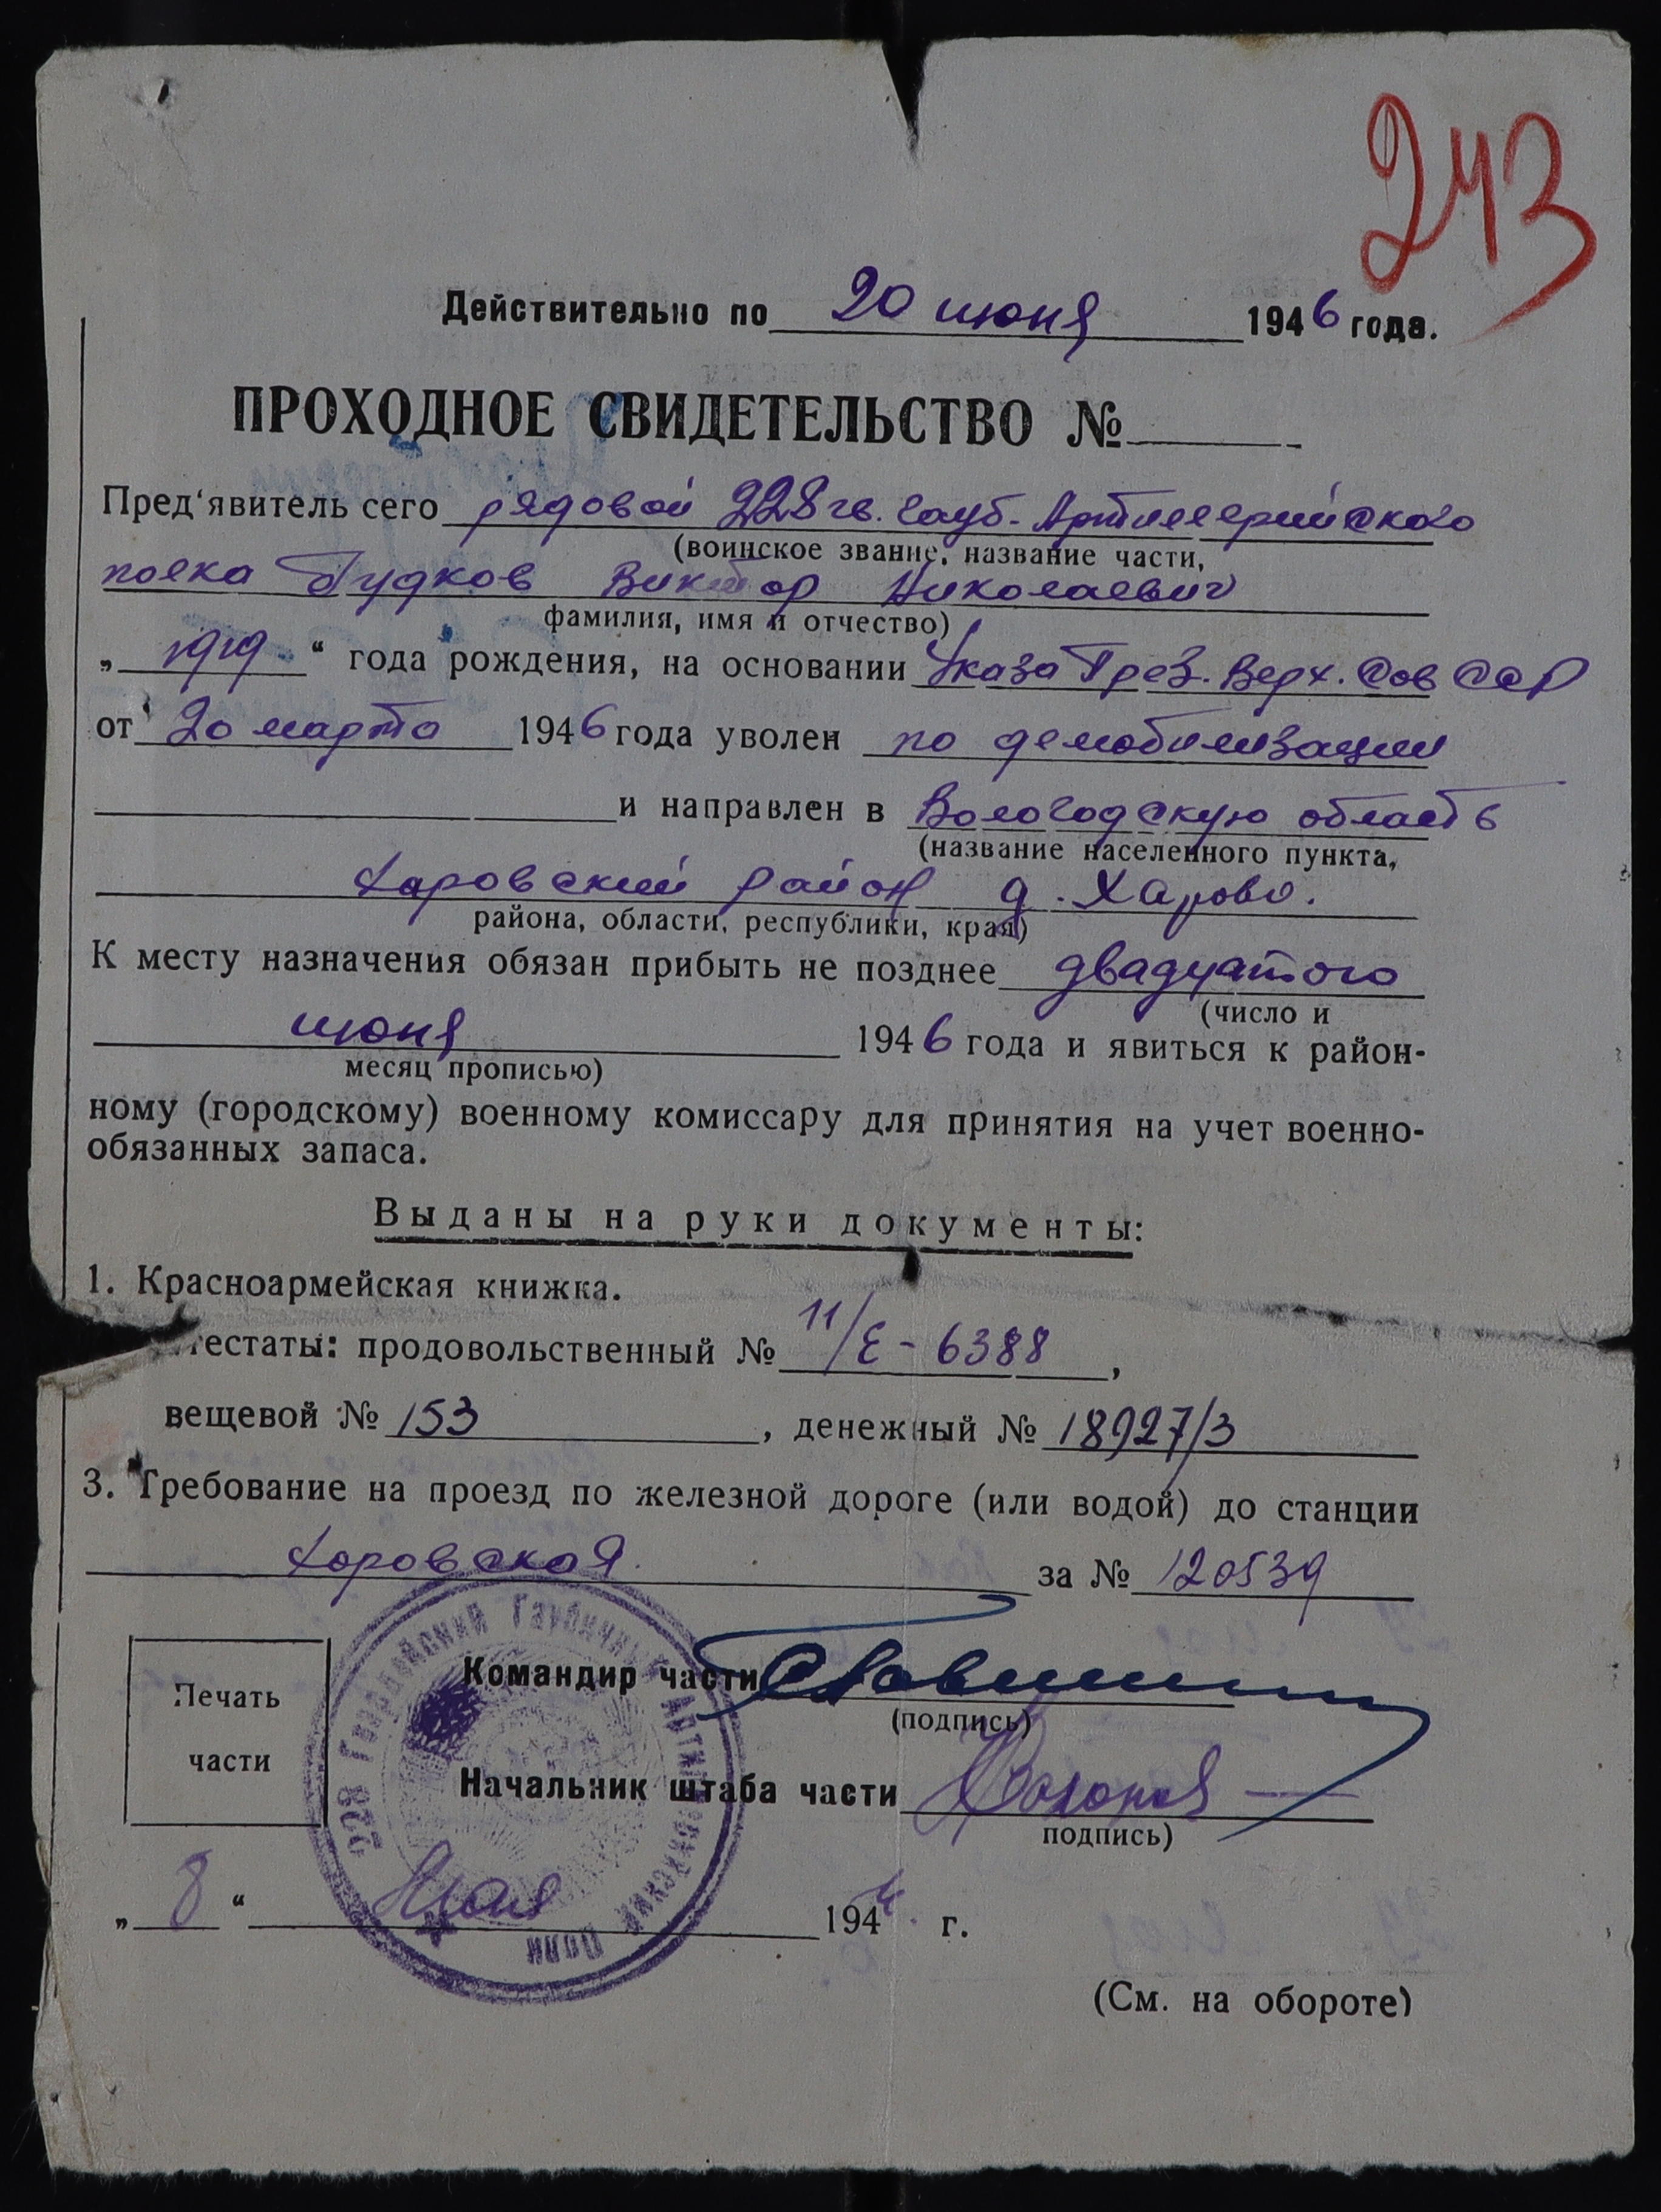 243
Действительно по 20 июня 1946 года.
ПРОХОДНОЕ СВИДЕТЕЛЬСТВО №
Пред'явитель сего рядовой 228 гв. Гауб. Артиллерийского
(воинское звание, название части,
полка Будков Виктор Николаевич
фамилия, имя и отчество)
„ 1919 “ года рождения, на основании Указа През. Верх. Сов ССР
от 20 марта 1946 года уволен по демобилизации
и направлен в Вологодскую область
(название населенного пункта,
Харовский район д. Харово.
района, области, республики, края)
К месту назначения обязан прибыть не позднее двадцатого
(число и
июня 1946 года и явиться к район-
месяц прописью)
ному (городскому) военному комиссару для принятия на учет военно-
обязанных запаса.
Выданы на руки документы:
1. Красноармейская книжка.
тестаты: продовольственный № 11/Е-6388,
вещевой № 153, денежный № 18927/3
3. Требование на проезд по железной дороге (или водой) до станции
Харовская за № 120539
228 Гвардейский Гаубичный Артиллерийский Полк
Командир части
(подпись)
Печать
части
Начальник штаба части
подпись)
„ 8 “ Мая 194 г.
(См. на обороте)